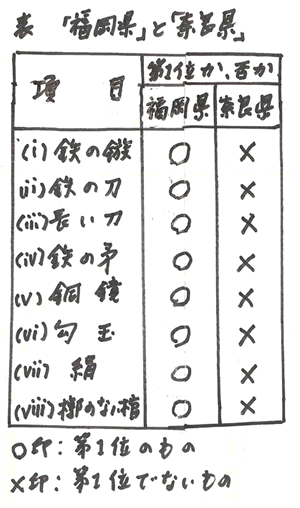 表 「福岡県」と「奈良県」
項 目 第1位か、否か
福岡県 奈良県
(i) 鉄の鏃 ○ ×
(ii) 鉄の刀 ○ ×
(iii) 長い刀 ○ ×
(iv) 鉄の矛 ○ ×
(v) 銅鏡 ○ ×
(vi) 勾玉 ○ ×
(vii) 絹 ○ ×
(viii) 槨のない棺 ○ ×
○印：第1位のもの
×印：第1位でないもの